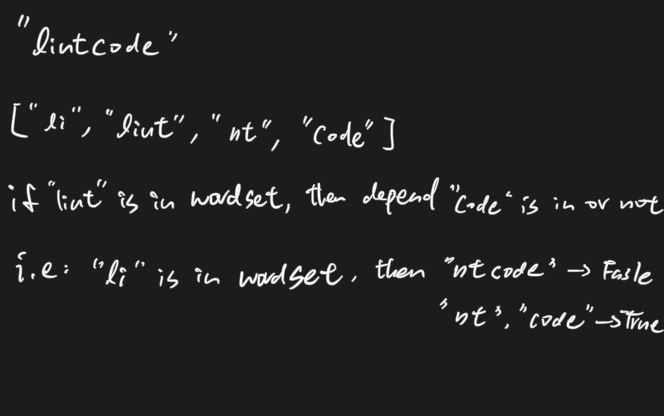 "lintcode"
["li", "lint", "nt", "code"]
if "lint" is in wordset, then depend "code" is in or not
i.e: "li" is in wordset, then "ntcode" → Fasle
"nt", "code" → True